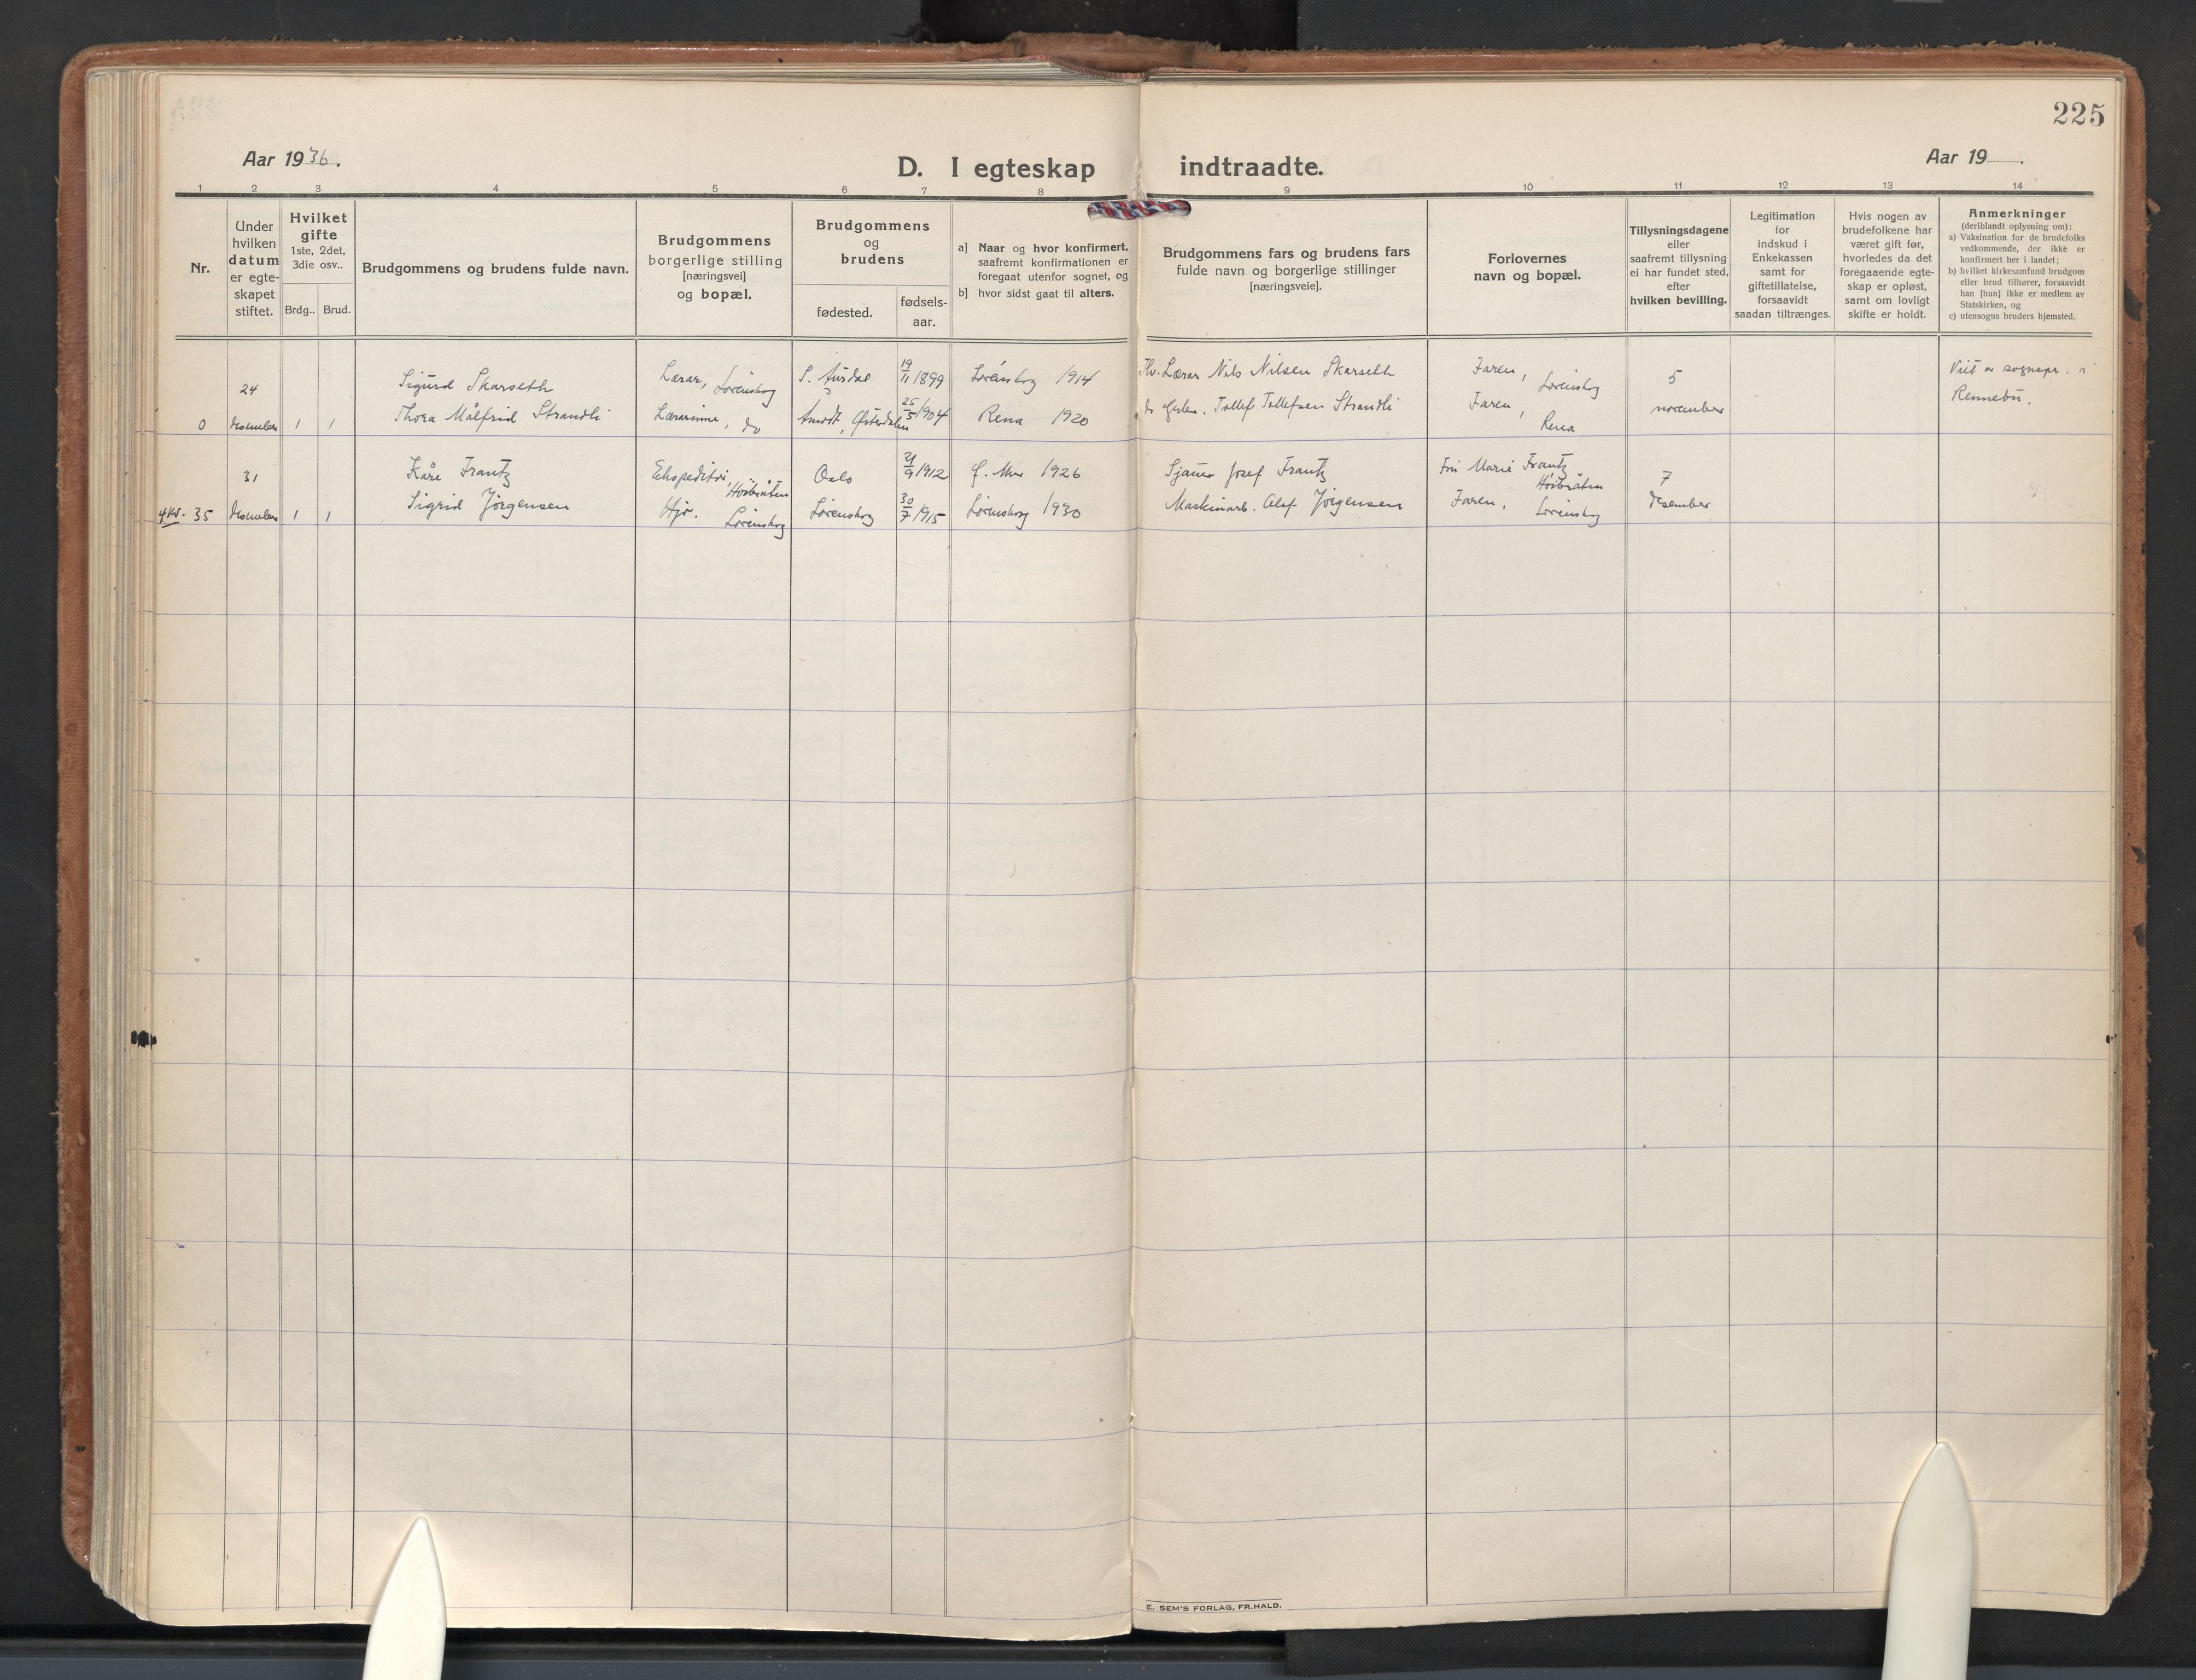 225
Aar 1936.
D. I egteskap indtraadte.
Aar 19 .
1 2 3 4 5 6 7 8 9 10 11 12 13 14
Nr.
Under
hvilken
datum
er egte-
skapet
stiftet.
Hvilket
gifte
1ste, 2det,
3die osv..
Brdg.. Brud.
Brudgommens og brudens fulde navn.
Brudgommens
borgerlige stilling
[næringsvei]
og bopæl.
Brudgommens
og
brudens
fødested.
fødsels-
aar.
a] Naar og hvor konfirmert,
saafremt konfirmationen er
foregaat utenfor sognet, og
b] hvor sidst gaat til alters.
Brudgommens fars og brudens fars
fulde navn og borgerlige stillinger
[næringsveie].
Forlovernes
navn og bopæl.
Tillysningsdagene
eller
saafremt tillysning
ei har fundet sted,
efter
hvilken bevilling.
Legitimation
for
indskud i
Enkekassen
samt for
giftetillatelse,
forsaavidt
saadan tiltrænges.
Hvis nogen av
brudefolkene har
været gift før,
hvorledes da det
foregaaende egte-
skap er opløst,
samt om lovligt
skifte er holdt.
Anmerkninger
(deriblandt oplysning om):
a) Vaksination for de brudefolks
vedkommende, der ikke er
konfirmert her i landet;
b) hvilket kirkesamfund brudgom
eller brud tilhører, forsaavidt
han [hun] ikke er medlem av
Statskirken, og
c) utensogns bruders hjemsted.
0
24
desember
1 1
Sigurd Skarseth
Thora Målfrid Strandli
Lærar, Lørenskog
Lærarinne, do
S. Aurdal
Åmodt, Østerdalen
19/11 1899
25/5 1904
Lørenskog 1914
Rena 1920
Lærar Nils Nilsen Skarseth
Tollef Tollefsen Strandli
Faren, Lørenskog
Faren, Rena
5
november
Viet av sognepr. i
Rennebu.
4 kv. 35
31
desember
1 1
Kåre Frantz
Sigrid Jørgensen
Ekspeditør, Høibråten
Hjv. Lørenskog
Oslo
Lørenskog
21/9 1912
30/7 1915
1926
Lørenskog 1930
Sjauer Josef Frantz
Maskinarb. Olaf Jørgensen
Fru Marie Frantz
Høibråten
Faren, Lørenskog
7
desember
E. SEM'S FORLAG, FR.HALD.